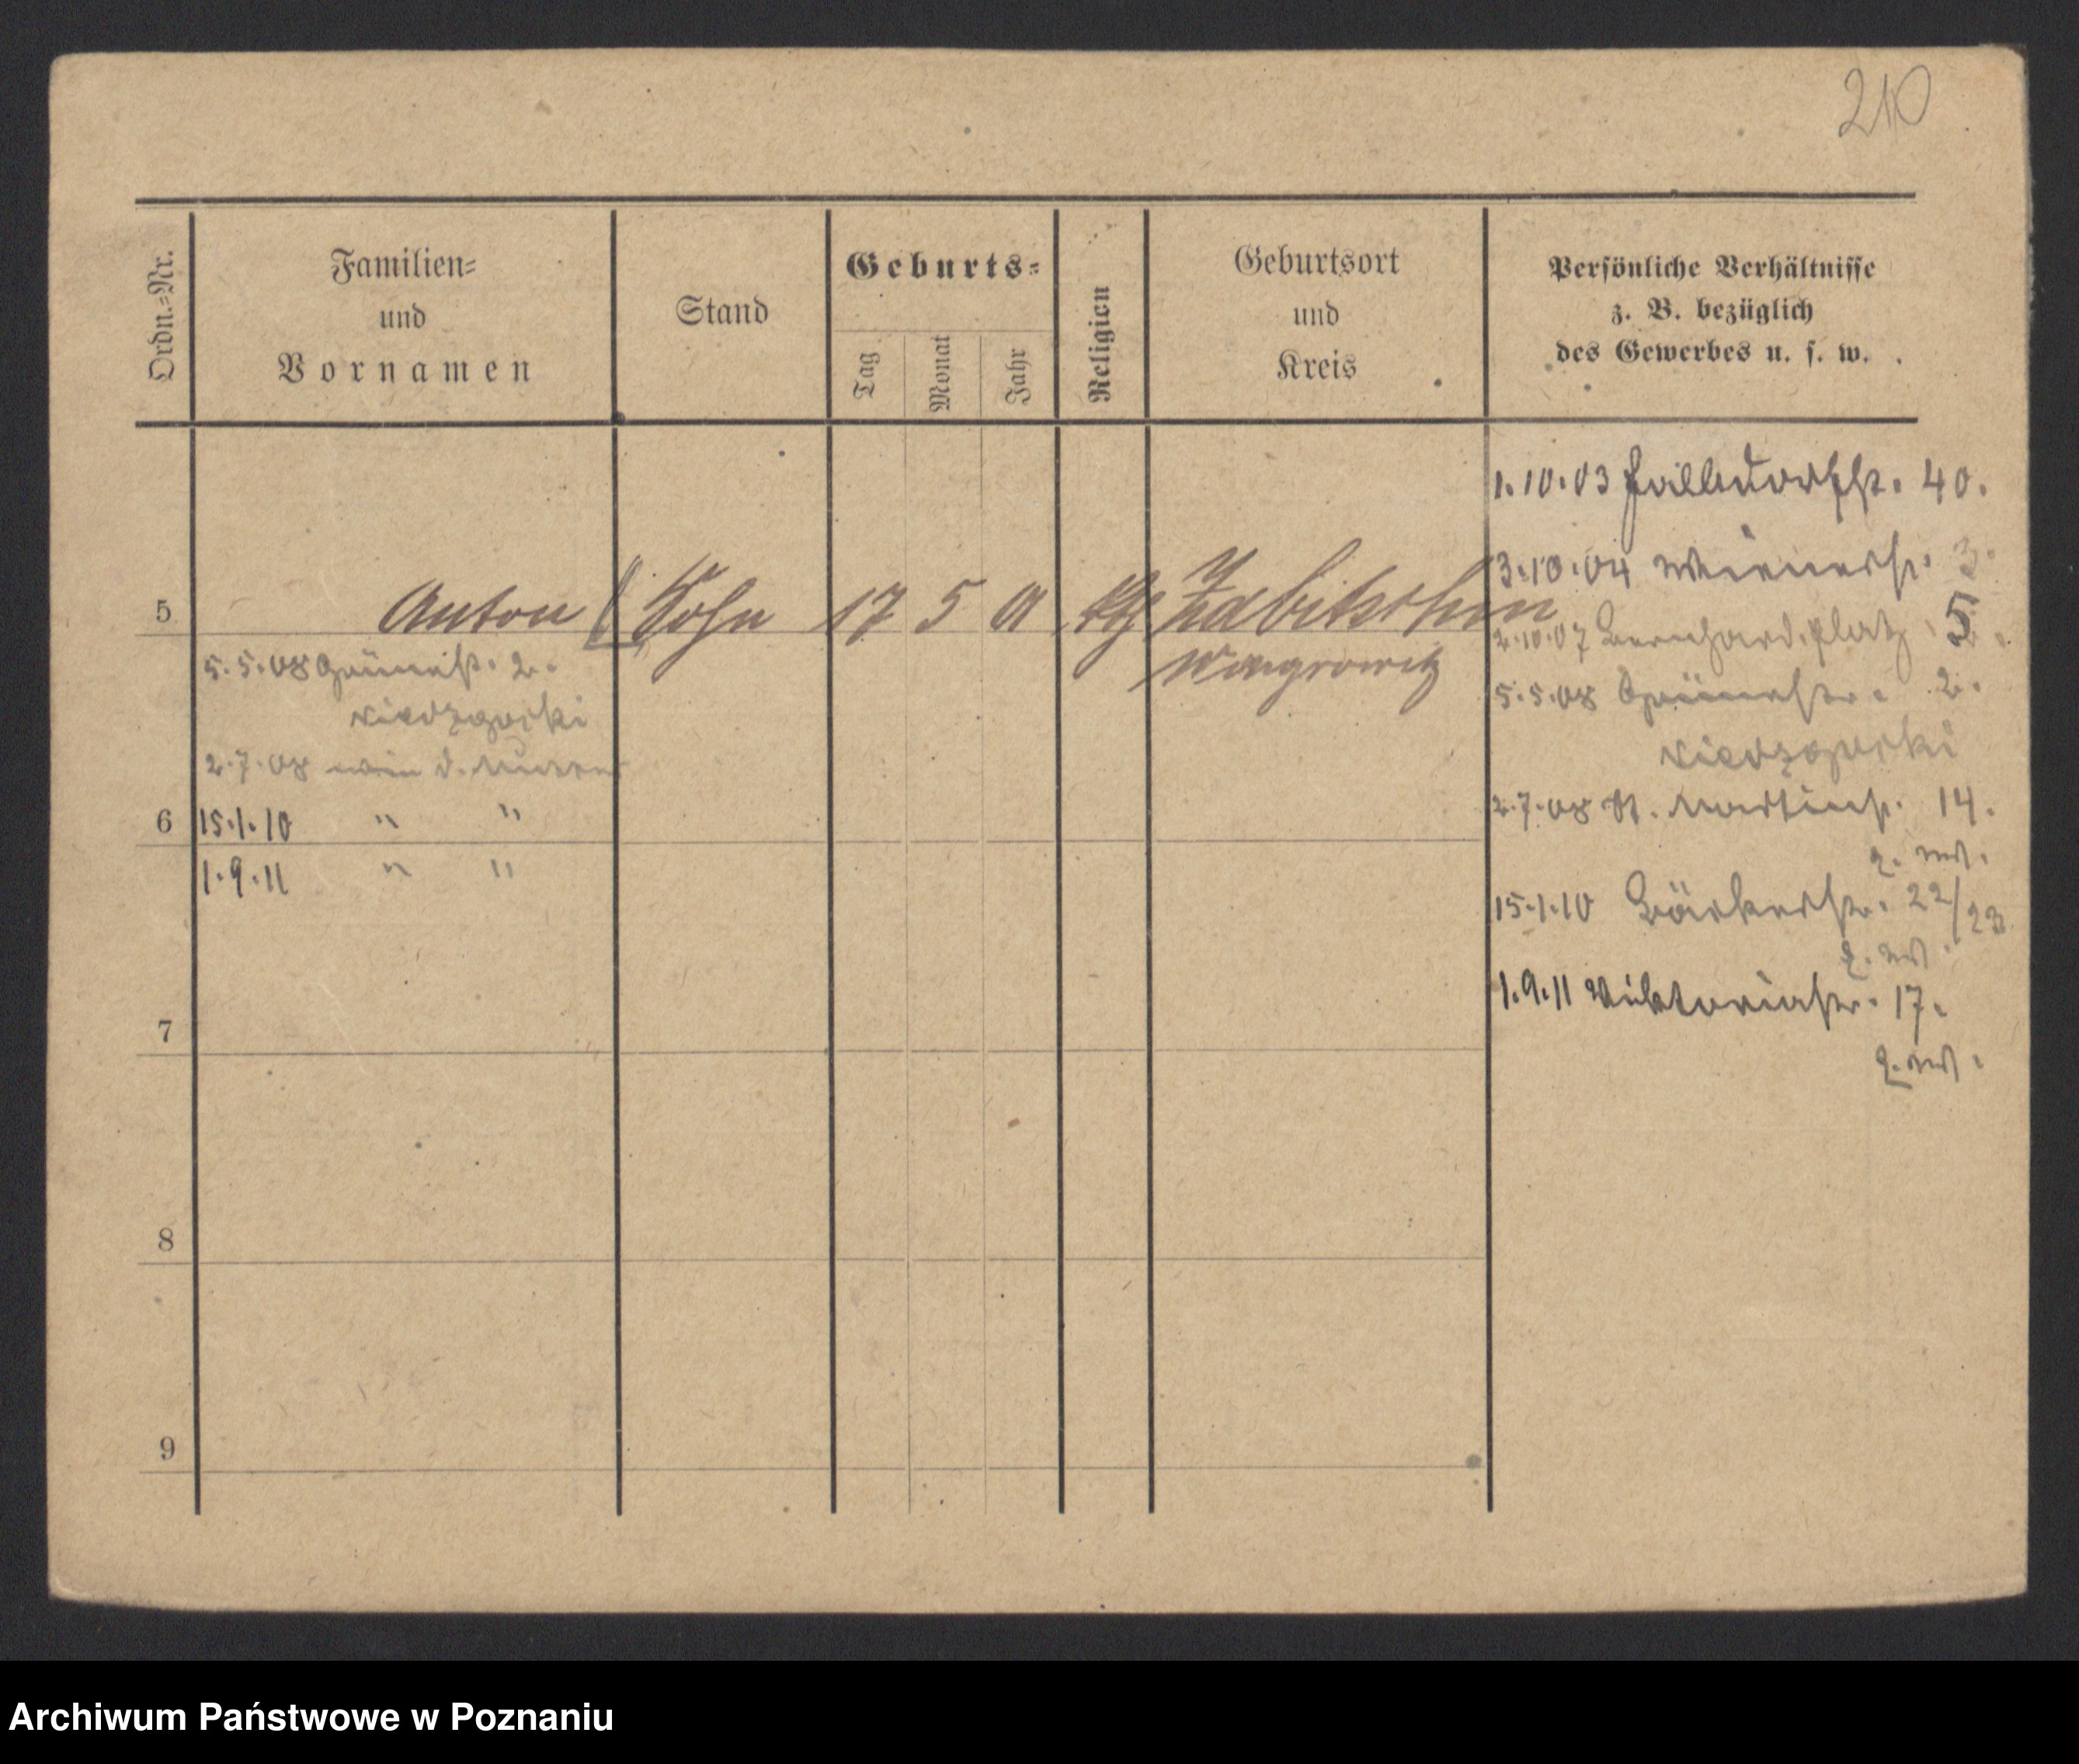 210
Ordn.-Nr.
Familien-
und
Vornamen
Stand
Geburts-
Tag
Monat
Jahr
Religion
Geburtsort
und
Kreis
Persönliche Verhältnisse
z. B. bezüglich
des Gewerbes u. s. w.
1.10.03 40.
3.10.04 Wienerstr. 3.
5 Anton Sohn 17 5 01 kth
2.10.07 Bernhard.platz 5
Wongrowitz
5.5.08 Grünestr. 2.
5.5.08 Grünestr. 2.
2.7.08 d. Mutter
2.7.08 St. Martinstr. 14.
6 15.1.10 " "
1.9.11 " "
15.1.10 Bäckerstr. 22/23
1.9.11 Viktoriastr. 17.
7
8
9
Archiwum Państwowe w Poznaniu